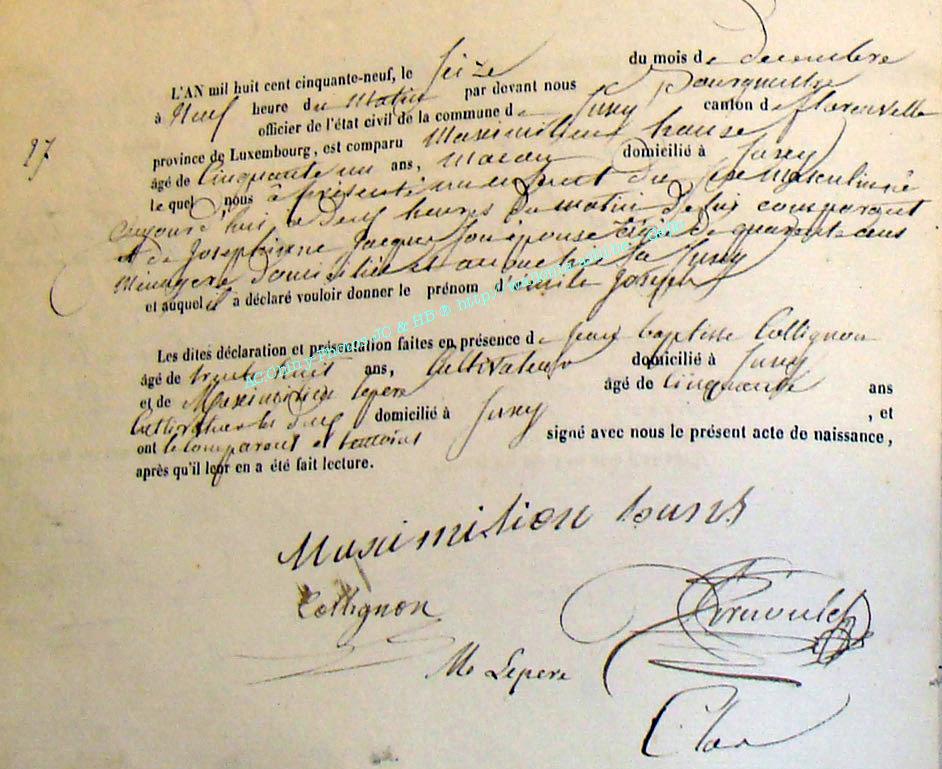 L'AN mil huit cent cinquante-neuf, le Seize du mois de decembre
à Neuf heure du Matin par devant nous Bourgmestre
officier de l'état civil de la commune de Jusey canton de florenville
27
province de Luxembourg, est comparu Maximilien hanse
âgé de Cinquante un ans, Macon domicilié à Jusey
le quel nous à présenté un enfant du sexe masculin né
aujourd'hui à deux heures du matin de lui comparant
et de Josephinne Jacque son épouse agée de quarante ans
Menagere domiciliée et
et auquel il a déclaré vouloir donner le prénom d'emile Joseph
Les dites déclaration et présentation faites en présence de jean baptisse Collignon
âgé de trente huit ans, Cultivateur domicilié à Jusey
et de Maximilien lepere âgé de Cinquante ans
Cultivateur les deux domicilié à Jusey , et
ont le comparant et temoins signé avec nous le présent acte de naissance,
après qu'il leur en a été fait lecture.
Maximilion hans
Collignon
Mo Lepere